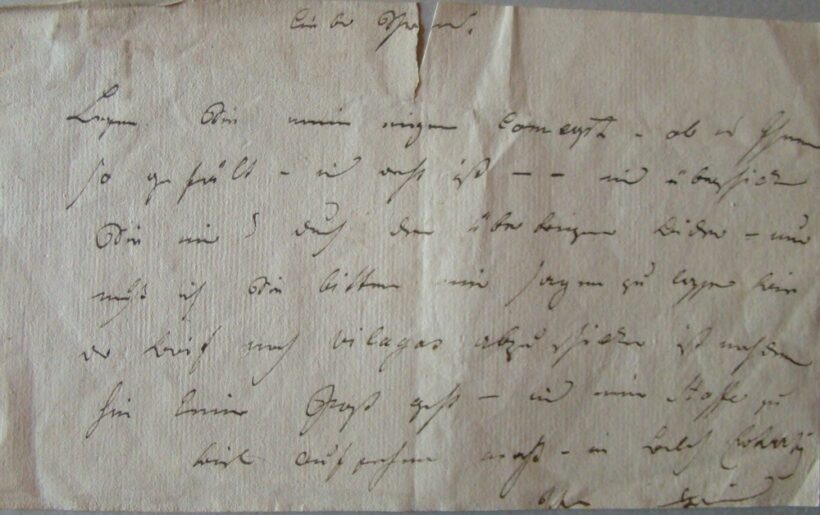 Lieber Freund,
Lesen Sie mein Concept - ob es Ihnen
so gefällt - und recht ist - - und überschicken
Sie mir durch den überbringer wieder - nur
muß ich Sie bitten mir sagen zu lassen wie
der Brief nach Vilagos abzuschicken ist nachdem
hin keine Post geht - und eine Staffe zu
viel aufsehen macht - in